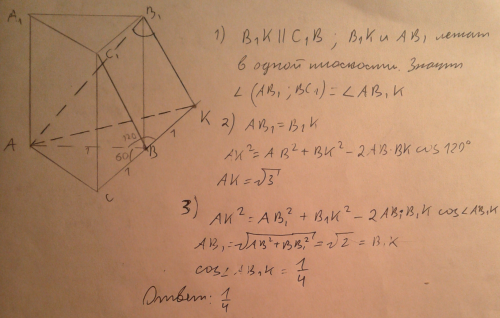 A₁
B₁
C₁
K
A
B
C
1
120
60
1
1
1) B₁K || C₁B ; B₁K и AB₁ лежат
в одной плоскости. Значит
∠(AB₁; BC₁) = ∠AB₁K
2) AB₁ = B₁K
AK² = AB² + BK² − 2AB·BK cos 120°
AK = √3
3) AK² = AB₁² + B₁K² − 2AB₁B₁K cos∠AB₁K
AB₁ = √AB² + BB₁² = √2 = B₁K
cos∠AB₁K = 1/4
Ответ: 1/4